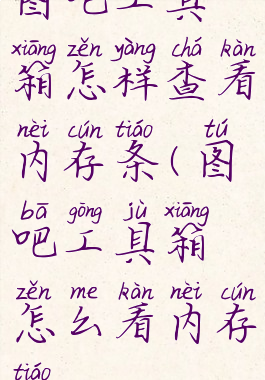 图吧工具
xiāng zěn yàng chá kàn
箱怎样查看
nèi cún tiáo tú
内存条(图
bā gōng jù xiāng
吧工具箱
zěn me kàn nèi cún
怎么看内存
tiáo